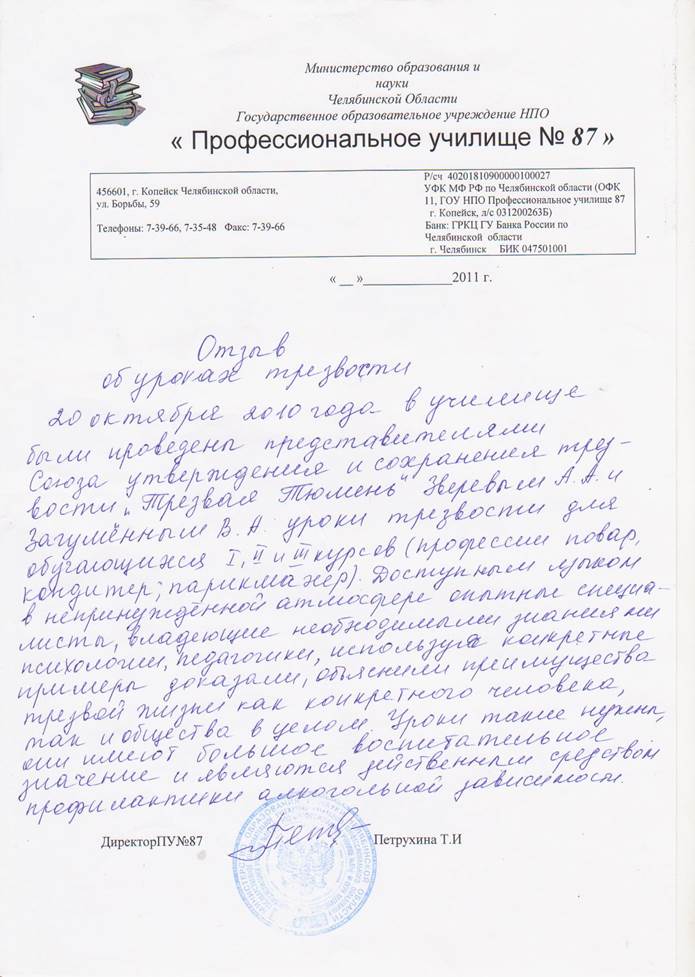 Министерство образования и
науки
Челябинской Области
Государственное образовательное учреждение НПО
« Профессиональное училище № 87 »
456601, г. Копейск Челябинской области,
ул. Борьбы, 59
Телефоны: 7-39-66, 7-35-48 Факс: 7-39-66
Р/сч 40201810900000100027
УФК МФ РФ по Челябинской области (ОФК
11, ГОУ НПО Профессиональное училище 87
г. Копейск, л/с 031200263Б)
Банк: ГРКЦ ГУ Банка России по
Челябинской области
г. Челябинск БИК 047501001
« __ »_____________2011 г.
Отзыв
об уроках трезвости
20 октября 2010 года в училище
были проведены представителями
Союза утверждения и сохранения трез-
вости „Трезвая Тюмень" Зверевым А.А. и
Загумённым В.А. уроки трезвости для
обучающихся I, II и III курсов (профессии повар,
кондитер; парикмахер). Доступным языком
в непринуждённой атмосфере опытные специа-
листы, владеющие необходимыми знаниями
психологии, педагогики, используя конкретные
примеры доказали, объяснили преимущества
трезвой жизни как конкретного человека,
так и общества в целом. Уроки такие нужны,
они имеют большое воспитательное
значение и являются действенным средством
профилактики алкогольной зависимости.
ДиректорПУ№87 Петрухина Т.И